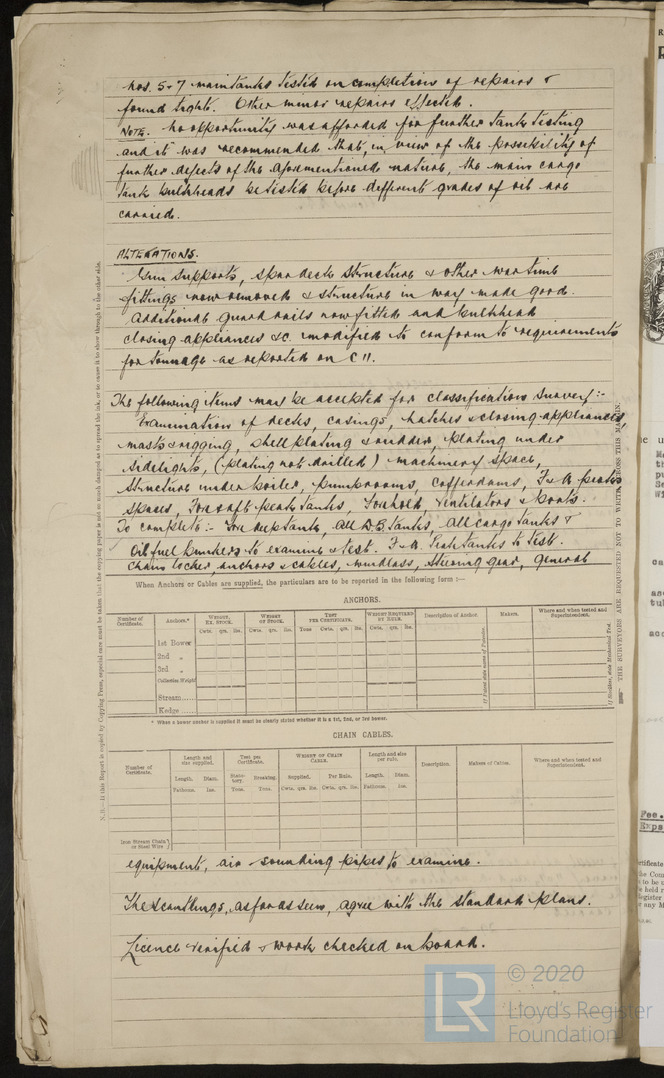 Nos. 5-7 main tanks tested on completion of repairs &
found tight. Other minor repairs effected.
NOTE. No opportunity was afforded for further tank testing
and it was recommended that, in view of the possibility of
further defects of the aforementioned nature, the main cargo
tank bulkheads be tested before different grades of oil are
carried.
ALTERATIONS.
Gun supports, spar decks structure & other war time
fittings now removed & structure in way made good.
Additional guard rails now fitted and bulkhead
closing appliances &c. modified to conform to requirements
for tonnage as reported on C 11.
The following items may be accepted for classification Survey:-
Examination of decks, casings, hatches & closing appliances,
masts & rigging, shell plating & rudder, plating under
sidelights, (plating not drilled) machinery space,
structure under boiler, pumprooms, cofferdams, F & A peaks
spaces, Fore & aft peak tanks, Forehold, ventilators &
To complete:- Fore deep tank, all D.B. tanks, All cargo tanks &
Oil fuel bunkers to examine & test. F & A Peak tanks to test.
Chain locker anchors & cables, windlass, steering gear, general
When Anchors or Cables are supplied, the particulars are to be reported in the following form :—
ANCHORS.
Number of Certificate.
Anchors.*
WEIGHT, EX. STOCK.
WEIGHT OF STOCK.
TEST PER CERTIFICATE.
WEIGHT REQUIRED BY RULE.
Description of Anchor
Makers.
Where and when tested and Superintendent.
Cwts. qrs. lbs. Cwts. qrs. lbs. Tons Cwts. qrs. lbs. Cwts. qrs. lbs.
1st Bower
2nd „
3rd „
Collective Weight
Stream
Kedge
* When a bower anchor is supplied it must be clearly stated whether it is a 1st, 2nd, or 3rd bower.
CHAIN CABLES.
Number of Certificate.
Length and size supplied.
Test per Certificate.
WEIGHT OF CHAIN CABLE.
Length and size per rule.
Description.
Makers of Cables.
Where and when tested and Superintendent.
Length. Diam. Statutory. Breaking. Supplied. Per Rule. Length. Diam.
Fathoms. Ins. Tons. Tons. Cwts. qrs. lbs. Cwts. qrs. lbs. Fathoms. Ins.
Iron Stream Chain or Steel Wire
equipment, air & sounding pipes to examine.
The scantlings, as far as seen, agree with the standard plans.
Licence verified & work checked on board.
N.B.—If this Report is copied by Copying Press, especial care must be taken that the copying paper is not so much damped as to spread the ink, or to cause it to show through to the other side.
THE SURVEYORS ARE REQUESTED NOT TO WRITE ACROSS THIS MARGIN.
LR
© 2020
Lloyd's Register
Foundation